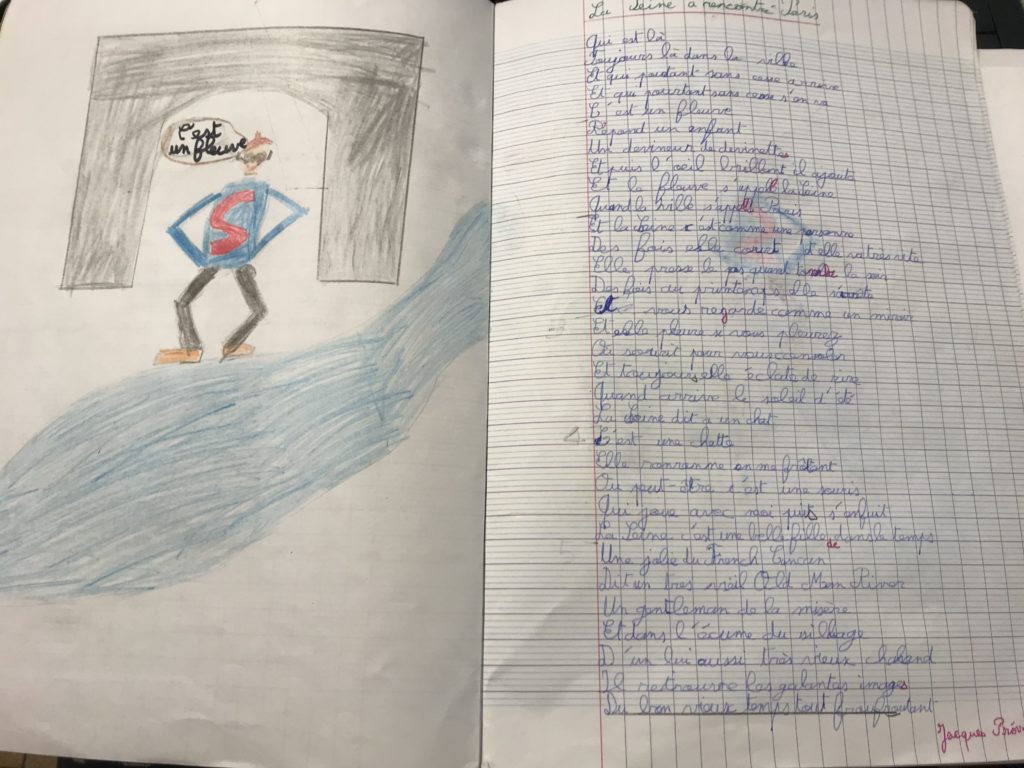 C'est
un fleuve
S
La Seine a rencontré Paris
Qui est là
Toujours là dans la ville
Et qui pourtant sans cesse arrive
Et qui pourtant sans cesse s'en va
C'est un fleuve
Répond un enfant
Un devineur de devinettes
Et puis l'œil brillant il ajoute
Et le fleuve s'appelle la Seine
Quand la ville s'appelle Paris
Et la Seine c'est comme une personne
Des fois elle court elle va très vite
Elle presse le pas quand tombe le soir
Des fois au printemps elle s'arrête
Et vous regarde comme un miroir
Et elle pleure si vous pleurez
Ou sourit pour vous consoler
Et toujours elle éclate de rire
Quand arrive le soleil d'été
La Seine dit un chat
C'est une chatte
Elle ronronne en me frôlant
Ou peut-être c'est une souris
Qui joue avec moi puis s'enfuit
La Seine c'est une belle fille dans le temps
de
Une jolie du French Cancan
Dit un très vieil Old Man River
Un gentleman de la misère
Et dans l'écume du sillage
D'un lui aussi très vieux chaland
Il retrouve les galantes images
Du bon vieux temps tout froufroutant
Jacques